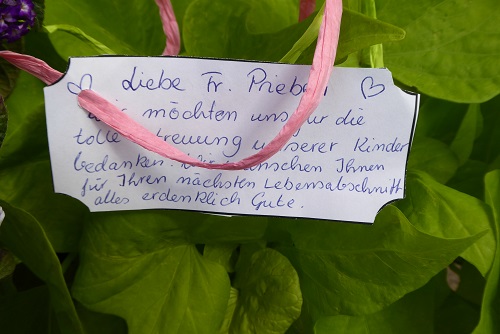 Liebe Fr. Prieben
Wir möchten uns für die
tolle Betreuung unserer Kinder
bedanken. Wir wünschen Ihnen
für Ihren nächsten Lebensabschnitt
alles erdenklich Gute.